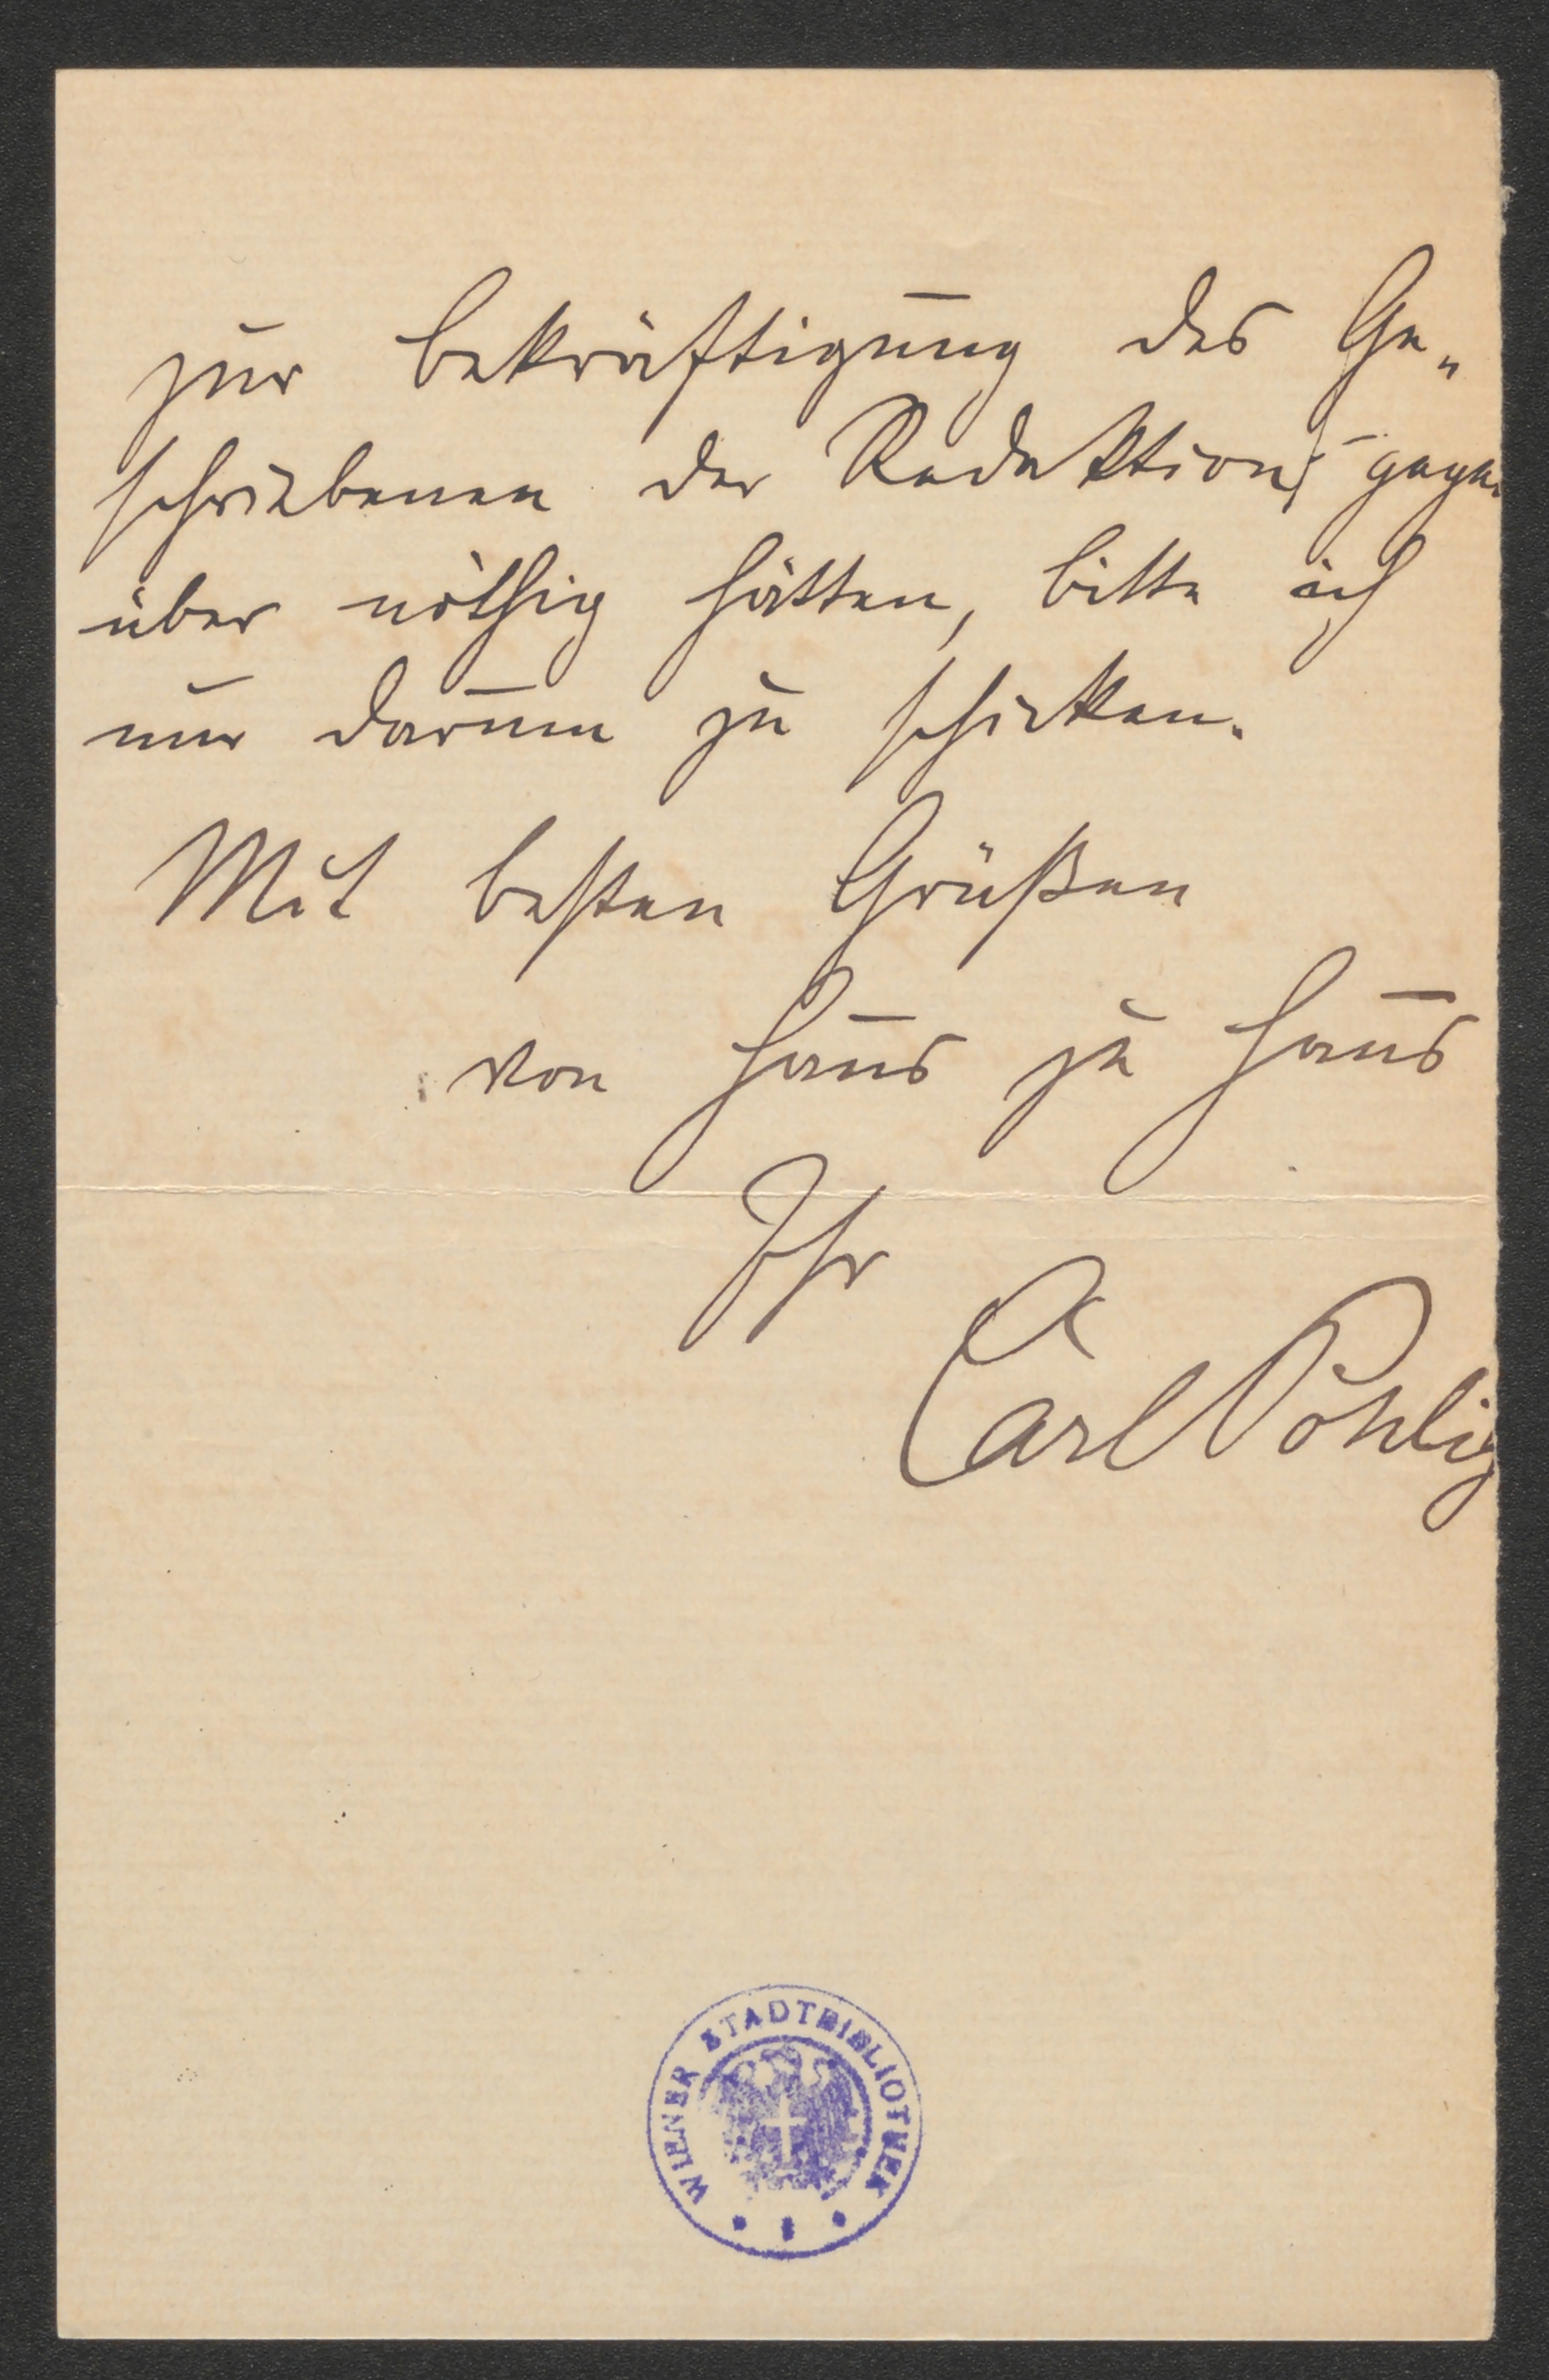 zur Bekräftigung des Ge„
schriebenen der Redaktion gegen
über nöthig hätten, bitte ich
nur darum zu schicken.
Mit besten Grüßen
von Haus zu Haus
Ihr
Carl Pohlig
WIENER STADTBIBLIOTHEK